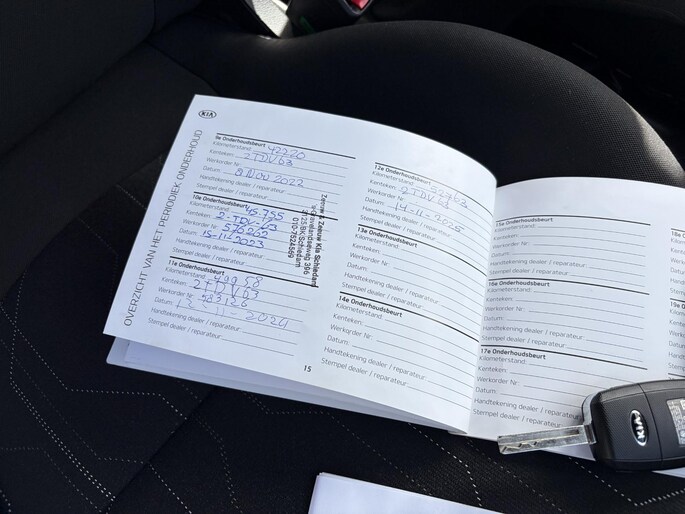 KIA
OVERZICHT VAN HET PERIODIEK ONDERHOUD
9e Onderhoudsbeurt
Kilometerstand: 42220
Kenteken: 2 TDV 63
Werkorder Nr:
Datum: 8 Nov 2022
Handtekening dealer / reparateur:
Stempel dealer / reparateur:
10e Onderhoudsbeurt
Kilometerstand: 45.755
Kenteken: 2-TDV-63
Werkorder Nr: 576262
Datum: 15-11-2023
Handtekening dealer / reparateur:
Stempel dealer / reparateur:
Zeeuw & Zeeuw Kia Schiedam
's-Gravelandseweg 396
Schiedam
11e Onderhoudsbeurt
Kilometerstand: 49958
Kenteken: 2 TDV 63
Werkorder Nr:
Datum: 13-11-2024
Handtekening dealer / reparateur:
Stempel dealer / reparateur:
12e Onderhoudsbeurt
Kilometerstand: 52963
Kenteken: 2 TDV 63
Werkorder Nr:
Datum: 14-11-2025
Handtekening dealer / reparateur:
Stempel dealer / reparateur:
13e Onderhoudsbeurt
Kilometerstand:
Kenteken:
Werkorder Nr:
Datum:
Handtekening dealer / reparateur:
Stempel dealer / reparateur:
14e Onderhoudsbeurt
Kilometerstand:
Kenteken:
Werkorder Nr:
Datum:
Handtekening dealer / reparateur:
Stempel dealer / reparateur:
15
15e Onderhoudsbeurt
Kilometerstand:
Kenteken:
Werkorder Nr:
Datum:
Handtekening dealer / reparateur:
Stempel dealer / reparateur:
16e Onderhoudsbeurt
Kilometerstand:
Kenteken:
Werkorder Nr:
Datum:
Handtekening dealer / reparateur:
Stempel dealer / reparateur:
17e Onderhoudsbeurt
Kilometerstand:
Kenteken:
Werkorder Nr:
Datum:
Handtekening dealer / reparateur:
Stempel dealer / reparateur:
KIA